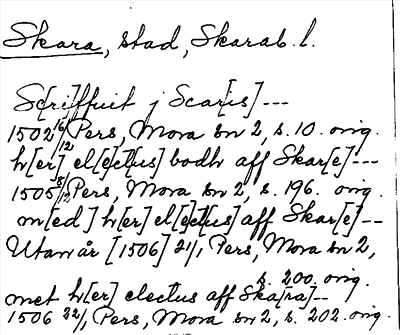 Skara, stad, Skarab. l.
Sc[ri]ffuit j Scar[is] ---
1502 16/12 Pers, Mora bn 2, s. 10. orig.
h[er] el[ect]us bodh aff Skar[e] ---
1505 /12 Pers, Mora bn 2, s. 196. orig.
m[ed] h[er] el[ect]us aff Skar[e] --
Utan år [1506] 21/1 Pers, Mora bn 2,
s. 200. orig.
met h[er] electus aff Ska[ra] --
1506 22/1, Pers, Mora bn 2, s. 202. orig.